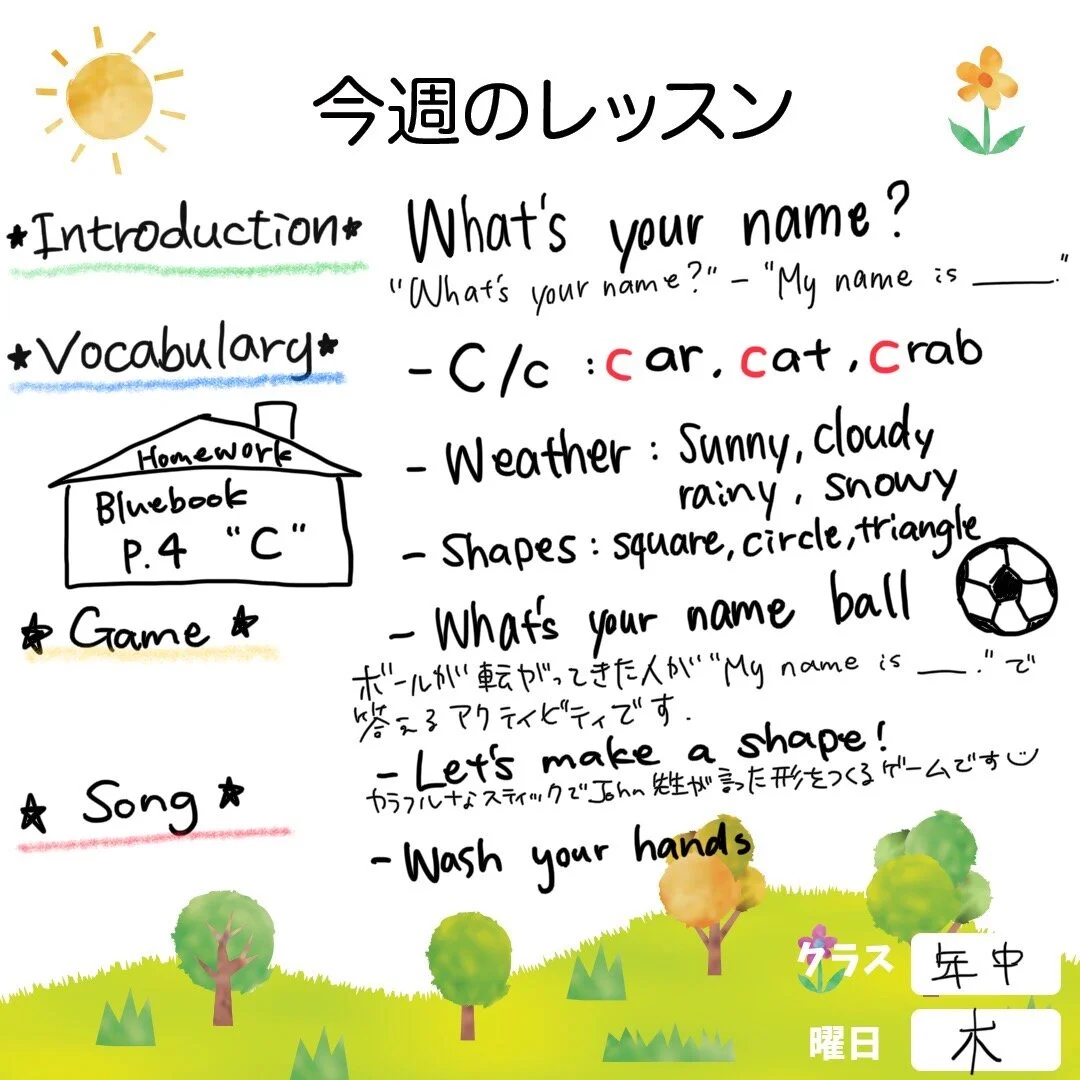 今週のレッスン
★Introduction★ What's your name?
"What's your name?" – "My name is ____."
★Vocabulary★ – C/c : car, cat, crab
– Weather : Sunny, cloudy
rainy, snowy
– Shapes : square, circle, triangle
Homework
Bluebook
P.4 "C"
★ Game ★ – What's your name ball
ボールが転がってきた人が"My name is ___."で
答えるアクティビティです.
– Let's make a shape!
カラフルなスティックでJohn先生が言った形をつくるゲームです
★ Song ★ – Wash your hands
クラス 年中
曜日 木